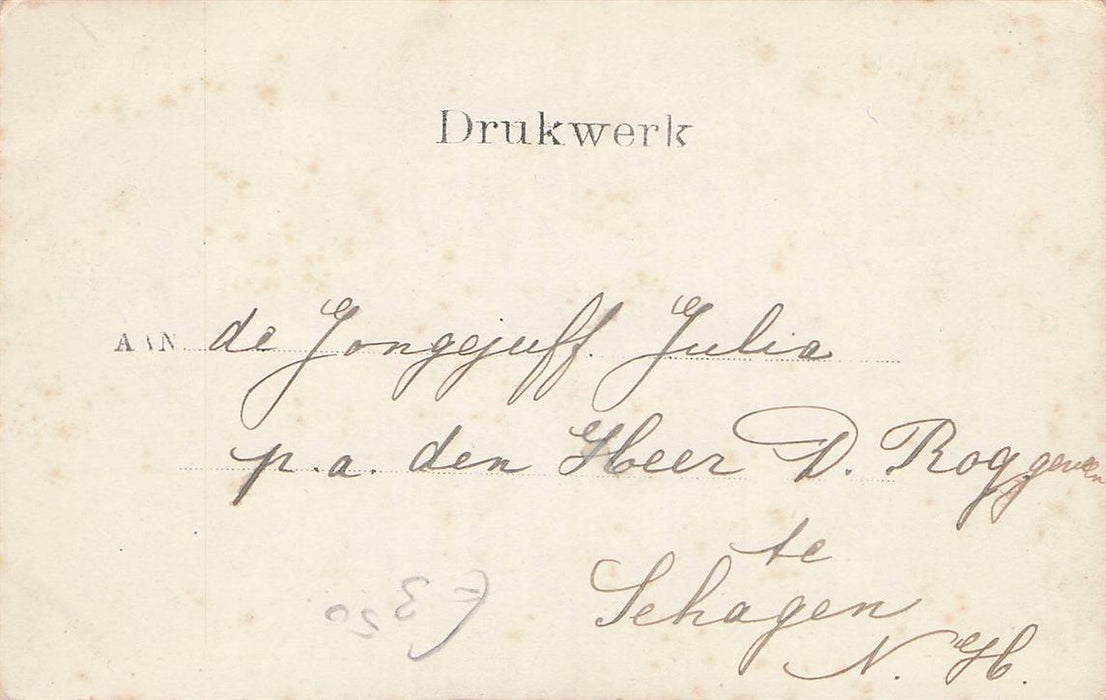 Drukwerk
AAN de Jongejuff. Julia
p.a. den Heer D. Roggeveen
te
Schagen
N. H.
f 3 50